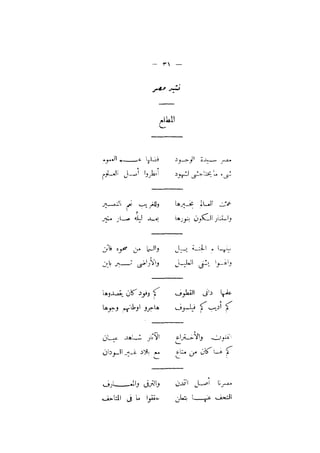 — ٣١ —
نشيد مصر
المطلع
مصر سيدة الوجود فضلها عم العموم
شىء ما يحتاجشى لشهود أسطروا أصل العلوم
عمت العالم بخيرها وللغريب نعم النصير
واستنار الكون بنورها بعد ليله صار منير
نيلها م الجنة يسيل والسما من صحوه فاتن
والهوا يشفى العليل والأراضى تـبر باين
عقلها دانى القطوف كم وفود كان يقصدوها
كم أديب كم فيلسوف هاجروا أوطانهم وجوها
الفنون والاختراع الآثار شاهد عيان
كم هنا كان من متاع مع بلاد غير السودان
مصرنا أصل التمدن والترقى والمعارف
التحف عنها بتعلن حققوا ما فى المتاحف